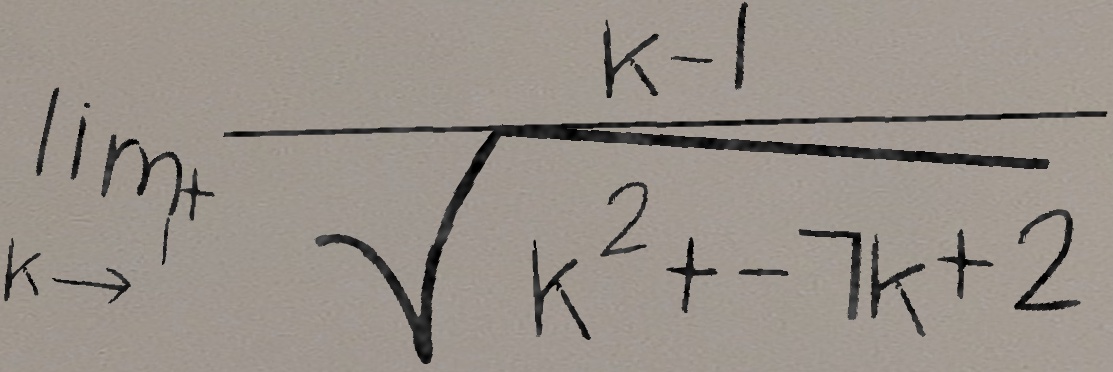 \lim_{k \to 1^+} \frac{k-1}{\sqrt{k^2+-7k+2}}